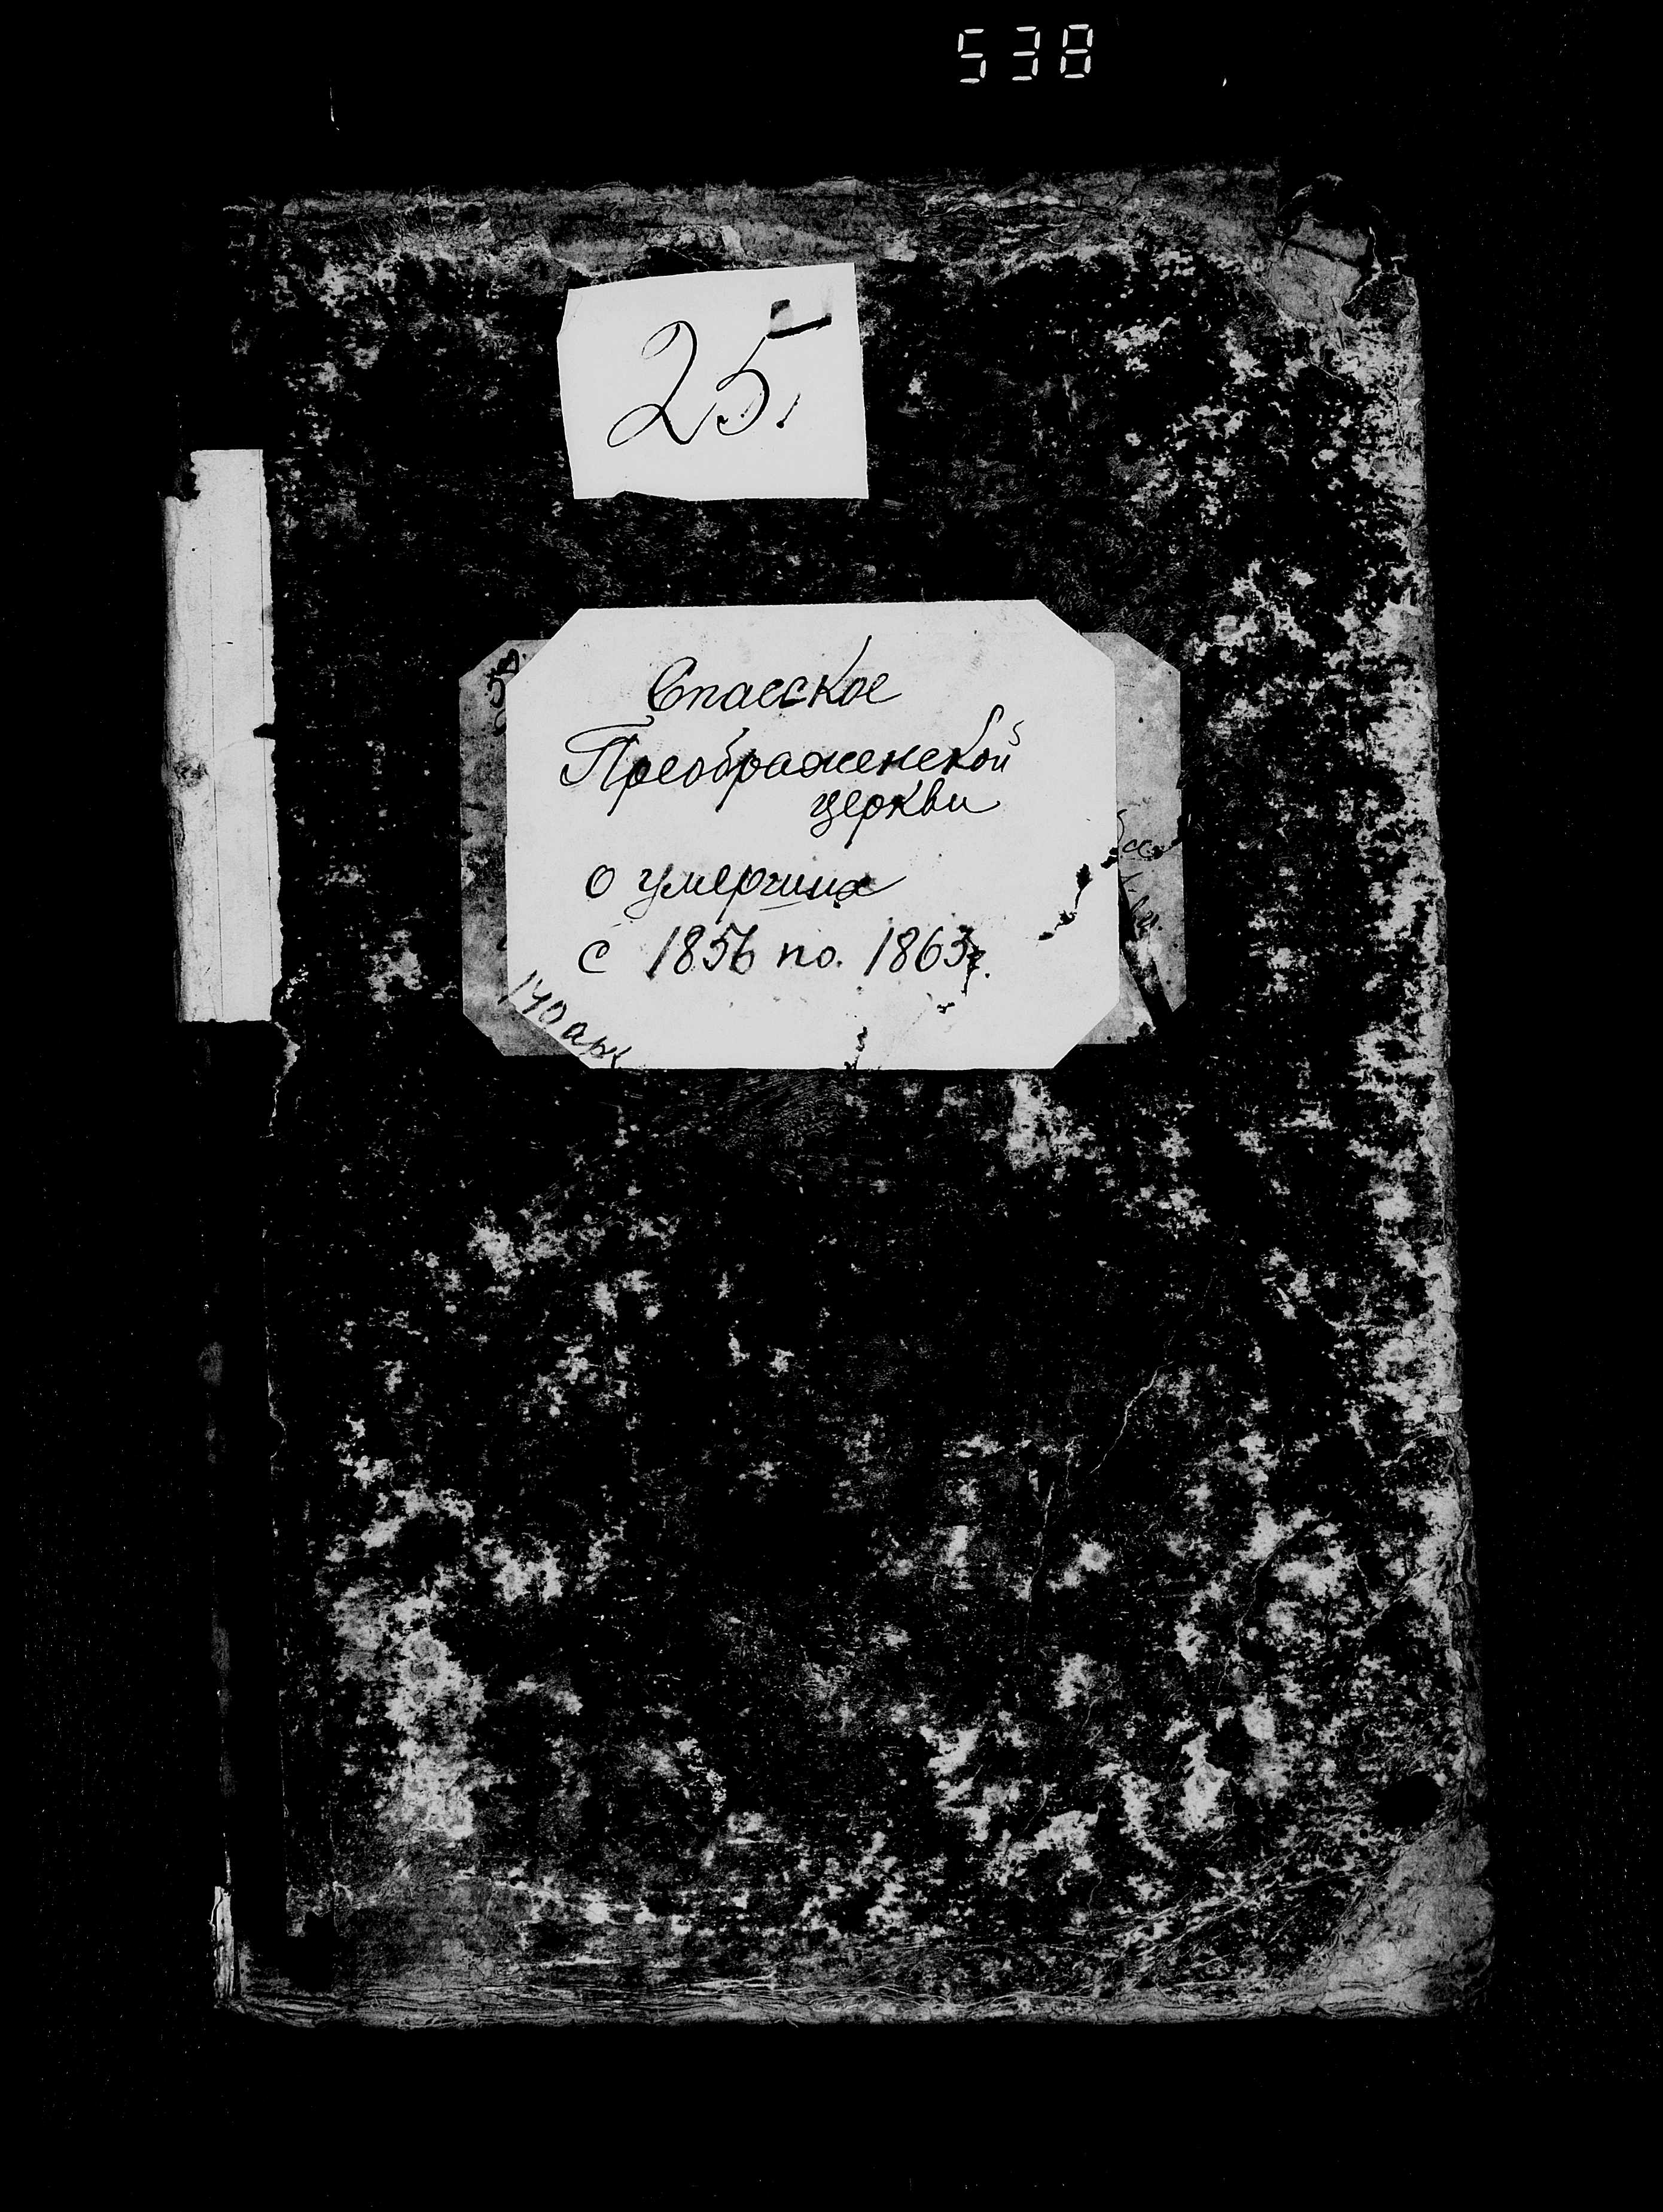 538
25.
Спасское
Преображенской
церкви
о умерших
с 1856 по. 1863г.
140 арк.